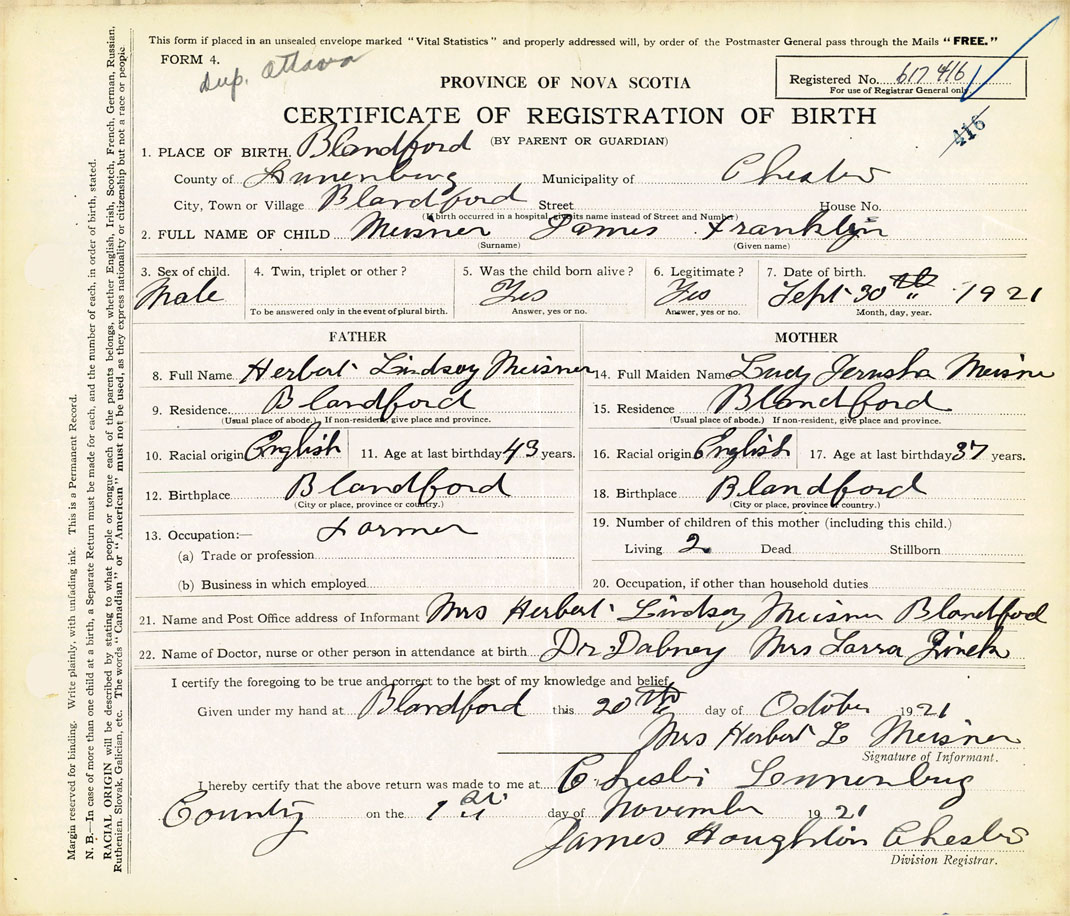 This form if placed in an unsealed envelope marked "Vital Statistics" and properly addressed will, by order of the Postmaster General pass through the Mails "FREE."
FORM 4.
Dup. Ottawa
PROVINCE OF NOVA SCOTIA
Registered No. 617416
For use of Registrar General only
CERTIFICATE OF REGISTRATION OF BIRTH
416
(BY PARENT OR GUARDIAN)
1. PLACE OF BIRTH. Blandford
County of Lunenburg Municipality of Chester
City, Town or Village Blandford Street House No.
(If birth occurred in a hospital, give its name instead of Street and Number)
2. FULL NAME OF CHILD Meisner James Franklyn
(Surname) (Given name)
3. Sex of child. 4. Twin, triplet or other? 5. Was the child born alive? 6. Legitimate? 7. Date of birth.
Male Yes Yes Sept 30th 1921
To be answered only in the event of plural birth. Answer, yes or no. Answer, yes or no. Month, day, year.
FATHER MOTHER
8. Full Name Herbert Lindsay Meisner 14. Full Maiden Name Lucy Jerusha Meisne
9. Residence Blandford 15. Residence Blandford
(Usual place of abode.) If non-resident, give place and province. (Usual place of abode.) If non-resident, give place and province.
10. Racial origin English 11. Age at last birthday 43 years. 16. Racial origin English 17. Age at last birthday 37 years.
12. Birthplace Blandford 18. Birthplace Blandford
(City or place, province or country.) (City or place, province or country.)
13. Occupation:— Farmer 19. Number of children of this mother (including this child.)
(a) Trade or profession Living 2 Dead Stillborn
(b) Business in which employed 20. Occupation, if other than household duties
21. Name and Post Office address of Informant Mrs Herbert Lindsay Meisner Blandford
22. Name of Doctor, nurse or other person in attendance at birth. Dr. Dabney Mrs Zinck
I certify the foregoing to be true and correct to the best of my knowledge and belief.
Given under my hand at Blandford this 20th day of October 1921
Mrs Herbert L Meisner
Signature of Informant.
I hereby certify that the above return was made to me at Chester Lunenburg
County on the 1st day of November 1921
James Houghton Chester
Division Registrar.
Margin reserved for binding. Write plainly, with unfading ink. This is a Permanent Record.
N. B.—In case of more than one child at a birth, a Separate Return must be made for each, and the number of each, in order of birth, stated.
RACIAL ORIGIN will be described by stating to what people or tongue each of the parents belongs, whether English, Irish, Scotch, French, German, Russian,
Ruthenian, Slovak, Galician, etc. The words "Canadian" or "American" must not be used, as they express nationality or citizenship but not a race or people